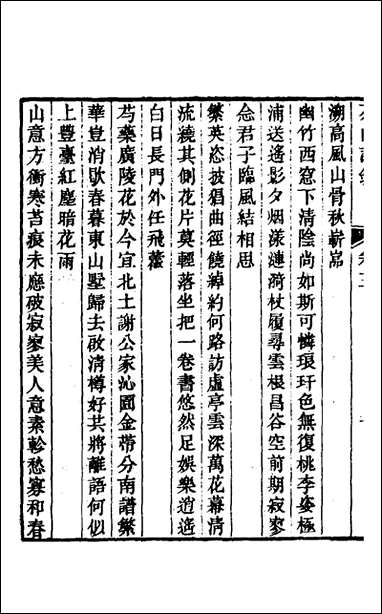 溯高風山骨秋嶄嵓
幽竹西窓下清陰尚如斯可憐琅玕色無復桃李姿極
浦送遙影夕烟漾漣漪杖履尋雲根昌谷空前期寂寥
念君子臨風結相思
繁英恣披猖曲徑饒綽約何路訪虛亭雲深萬花幕清
流繞其側花片莫輕落坐把一卷書悠然足娛樂逍遙
白日長門外任飛藿
芍藥廣陵花於今宜北土謝公家沁園金帶分南譜繁
華豈消歇春暮東山墅歸去啟清樽好共將離語何似
上豐臺紅塵暗花雨
山意方衝寒苔痕未應破寂寥美人意素軫愁寡和春